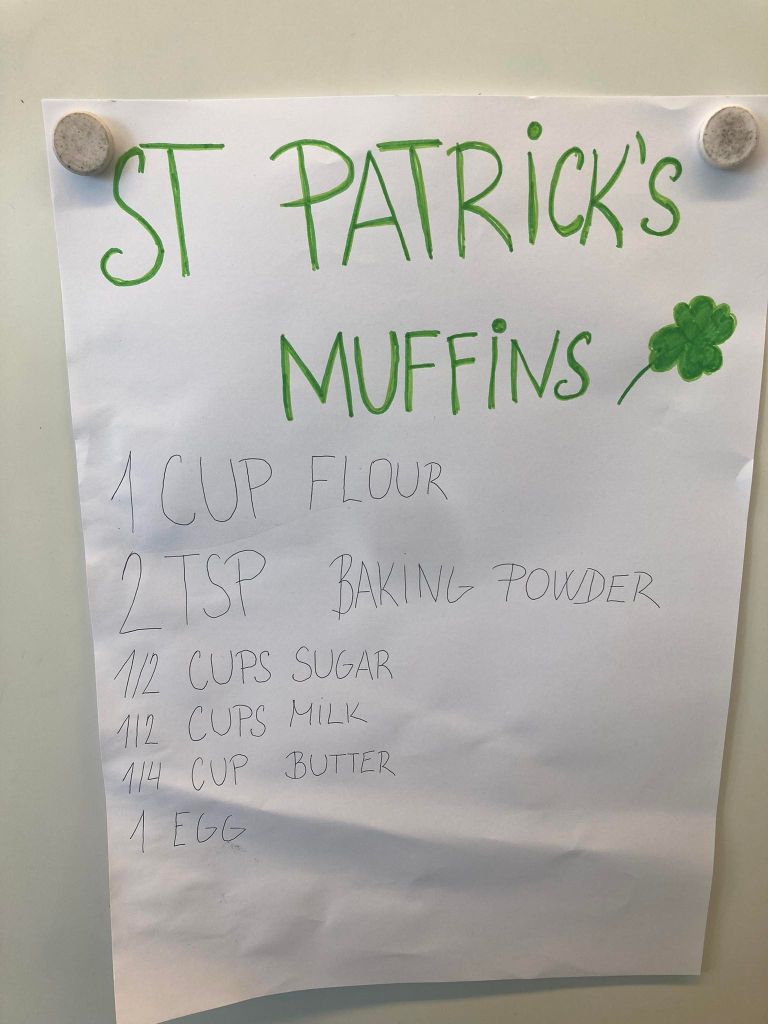 ST PATRICK'S
MUFFINS
1 CUP FLOUR
2 TSP BAKING POWDER
1/2 CUPS SUGAR
1/2 CUPS MILK
1/4 CUP BUTTER
1 EGG